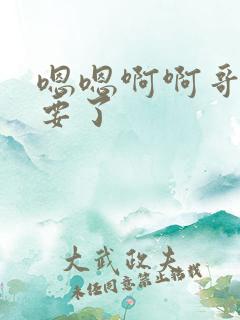 嗯嗯啊啊哥
要了
大武政夫
未经同意禁止转载